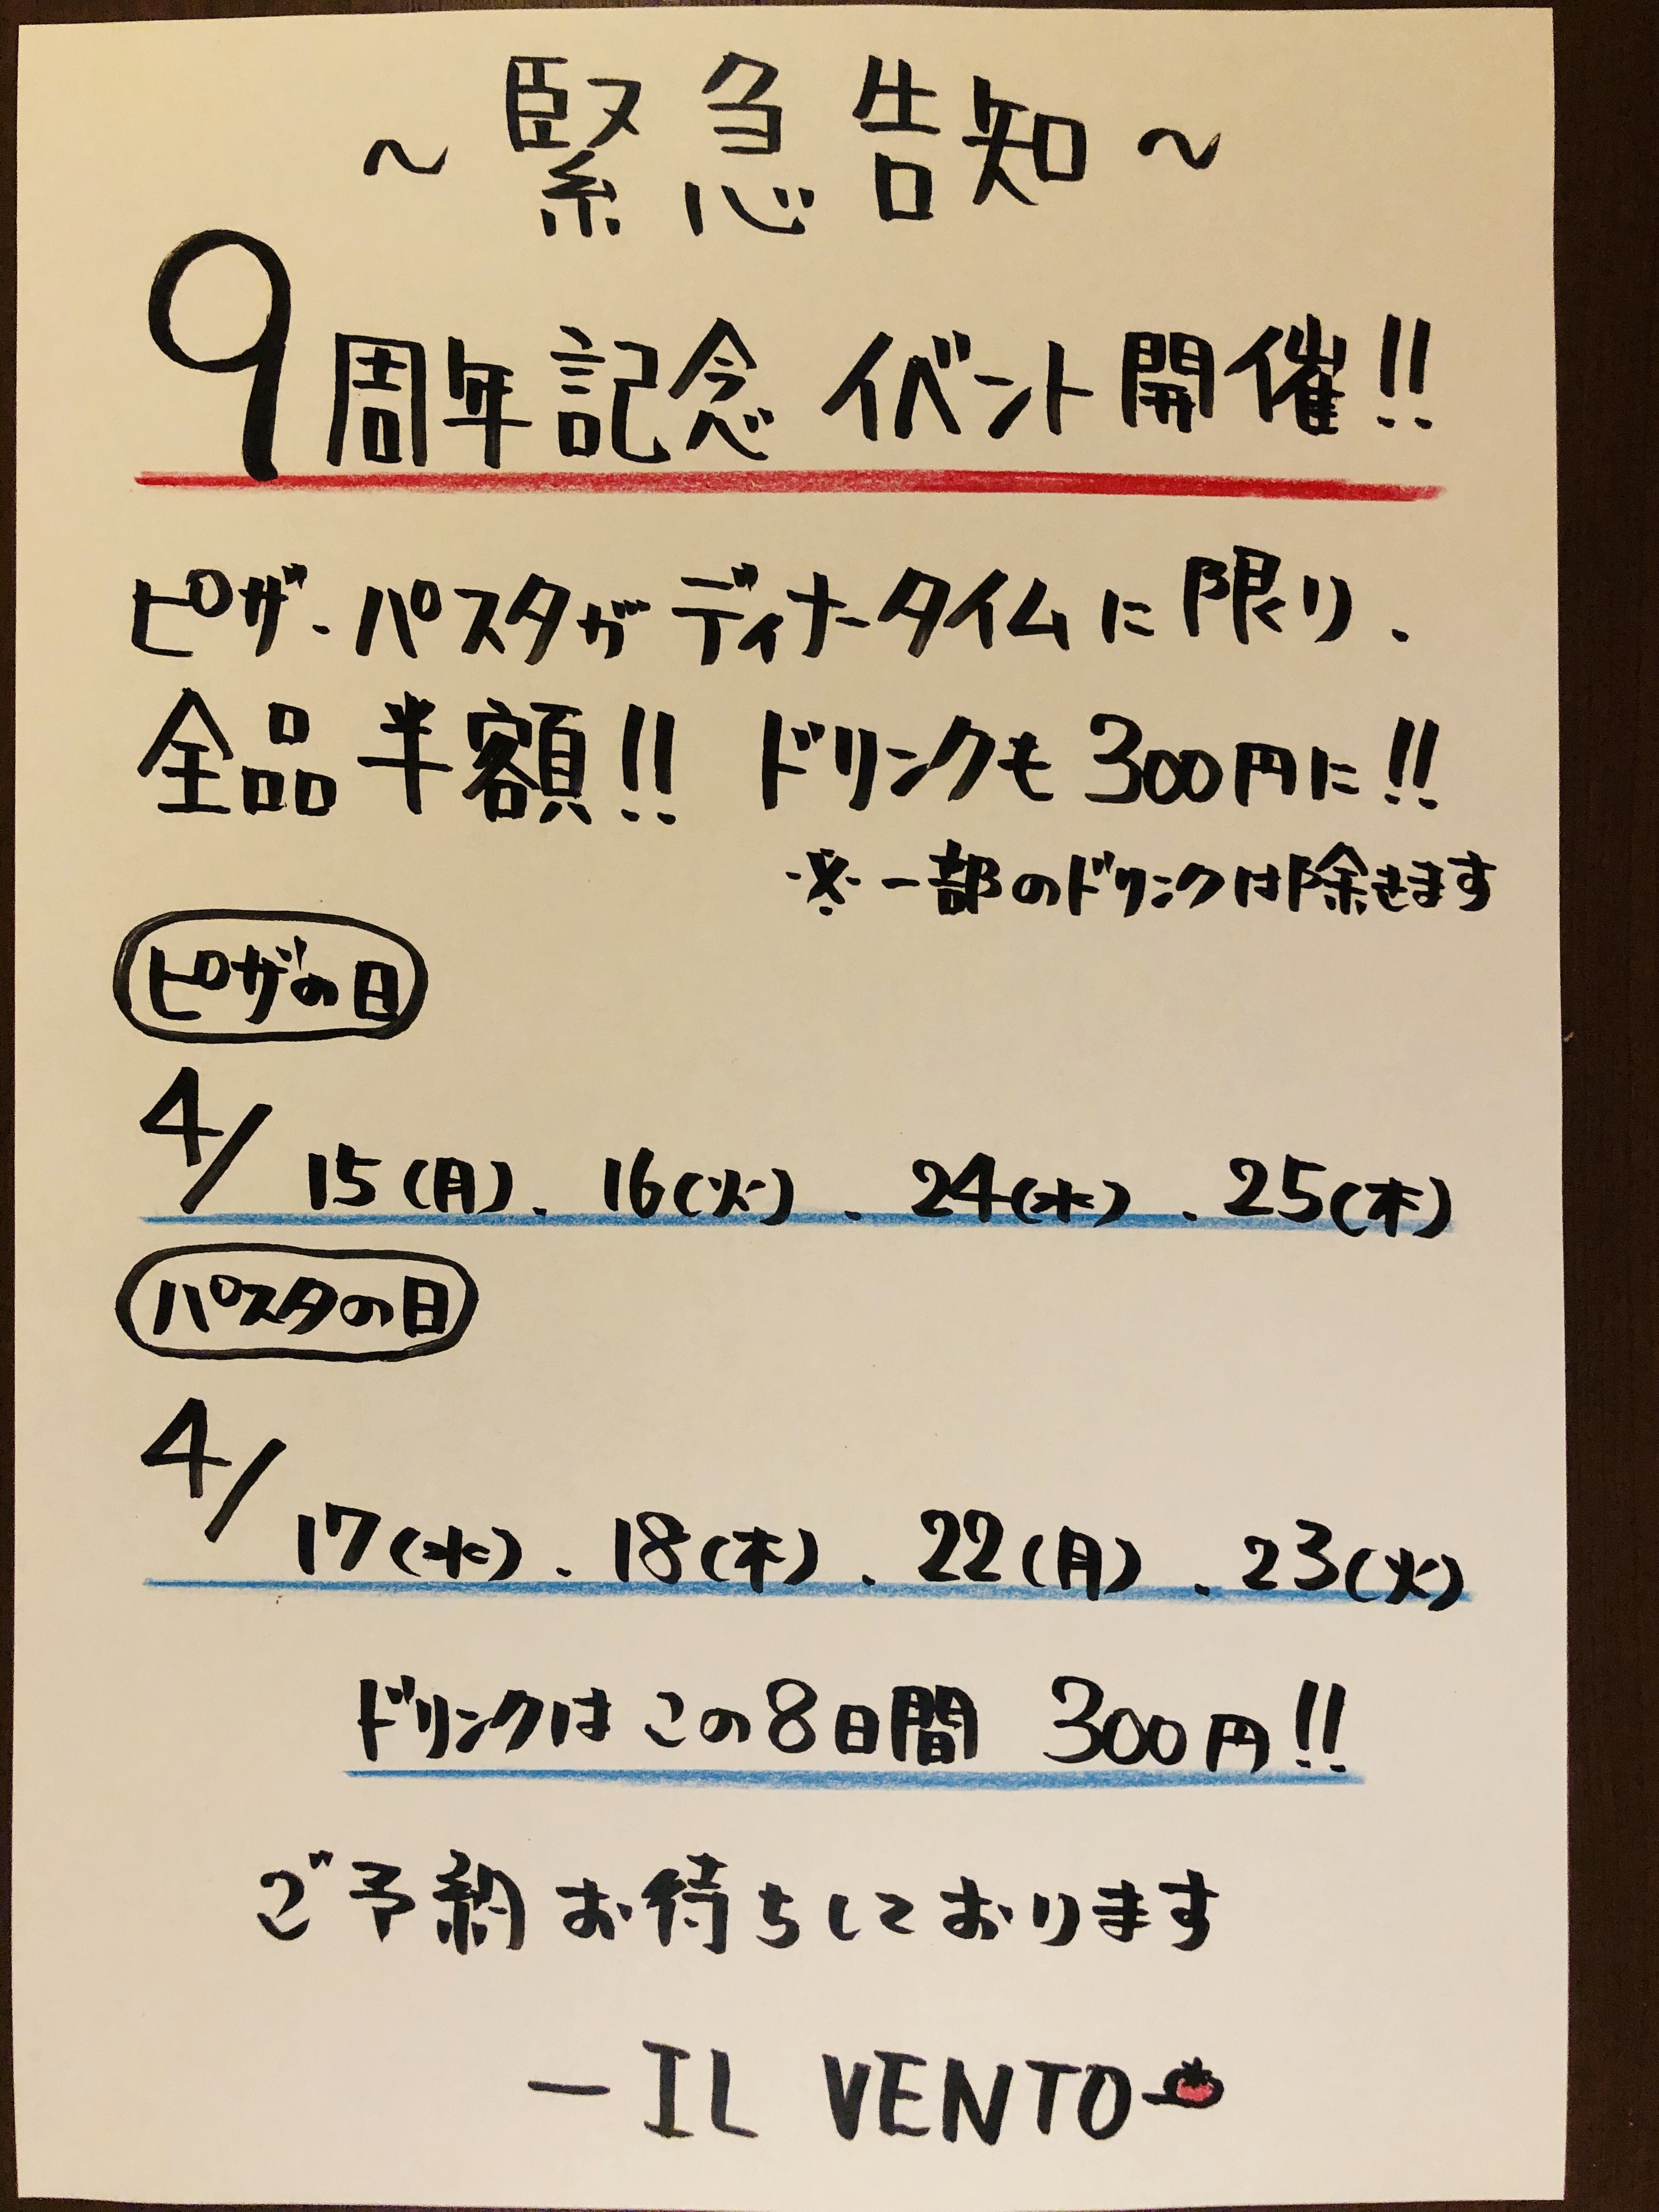 ～緊急告知～
9周年記念 イベント開催!!
ピザ、パスタがディナータイムに限り、
全品半額!! ドリンクも300円に!!
※一部のドリンクは除きます
ピザの日
4/15(月)、16(火)、24(水)、25(木)
パスタの日
4/17(水)、18(木)、22(月)、23(火)
ドリンクはこの8日間 300円!!
ご予約お待ちしております
－IL VENTO－